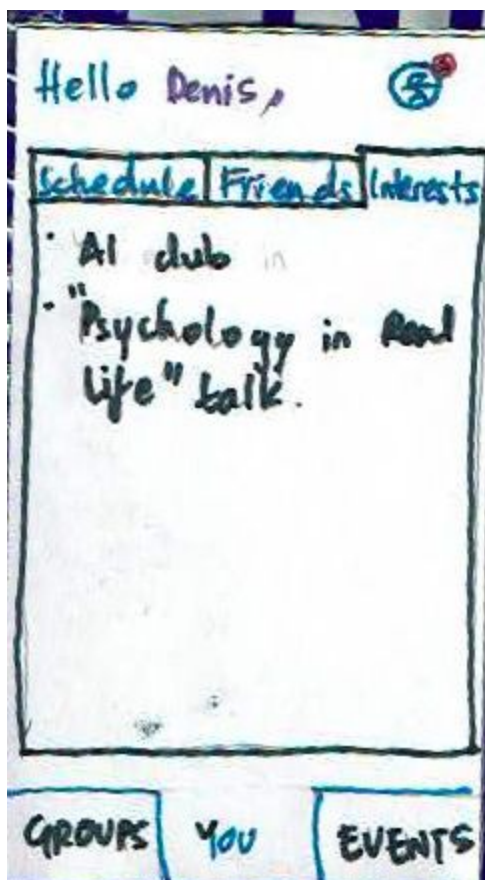 Hello Denis,
Schedule Friends Interests
· AI club in
· "Psychology in Real
Life" talk.
GROUPS YOU EVENTS